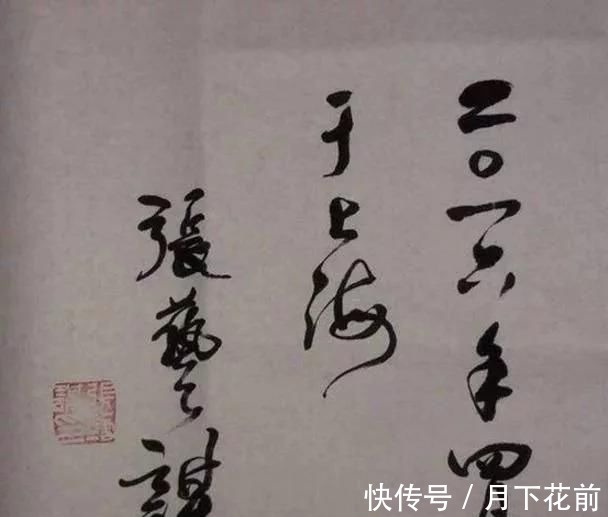 二〇一六年四
于上海
張藝謀
快传号/月下花前